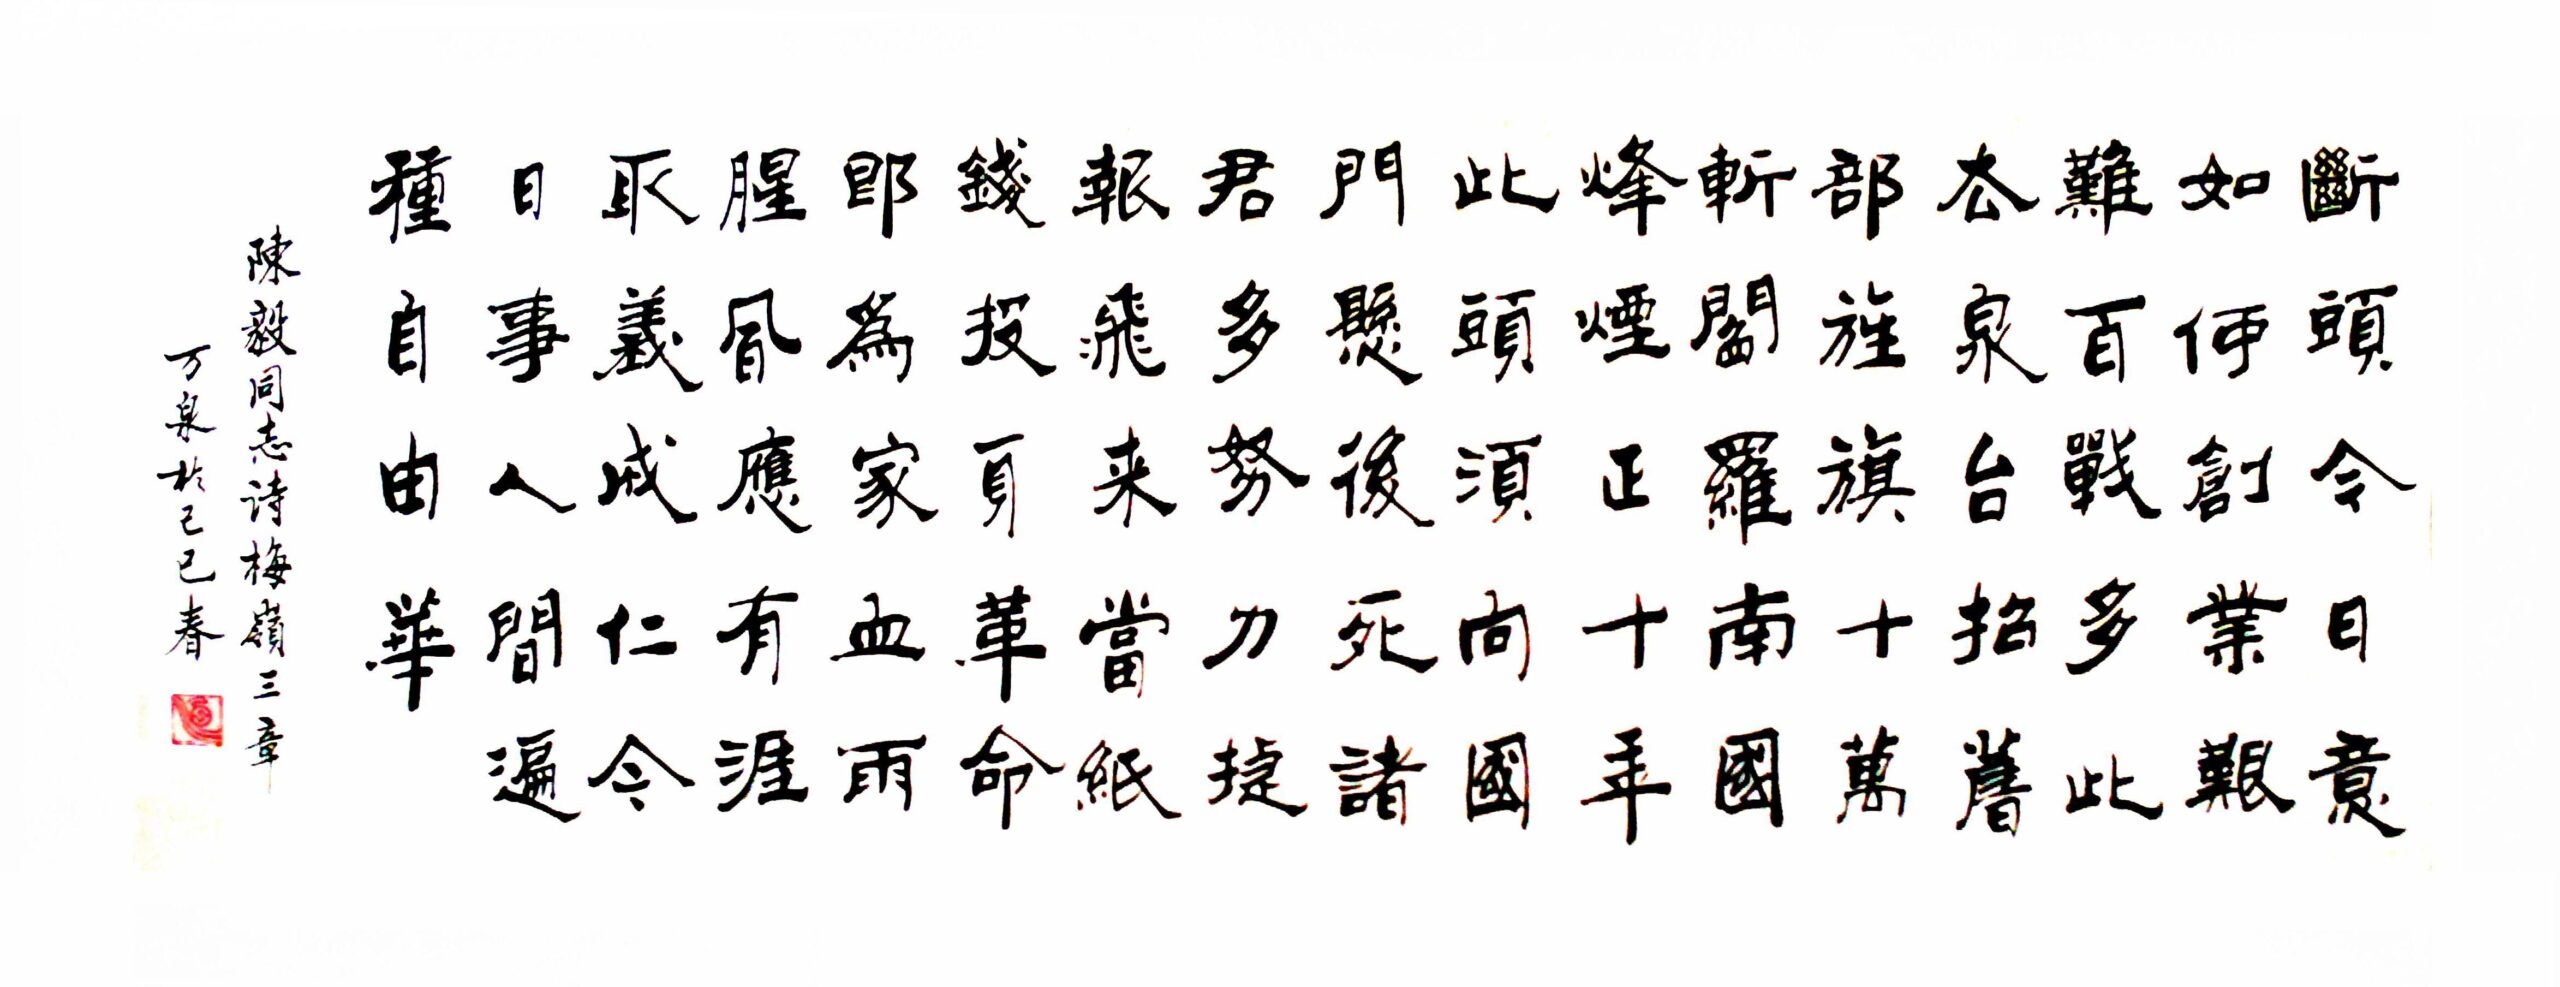 斷頭今日意
如何創業艱
難百戰多此
去泉台招舊
部旌旗十萬
斬閻羅南國
烽煙正十年
此頭須向國
門懸後死諸
君多努力捷
報飛来當紙
錢投身革命
即為家血雨
腥風應有涯
取義成仁今
日事人間遍
種自由華
陳毅同志诗梅嶺三章
万泉於己巳春